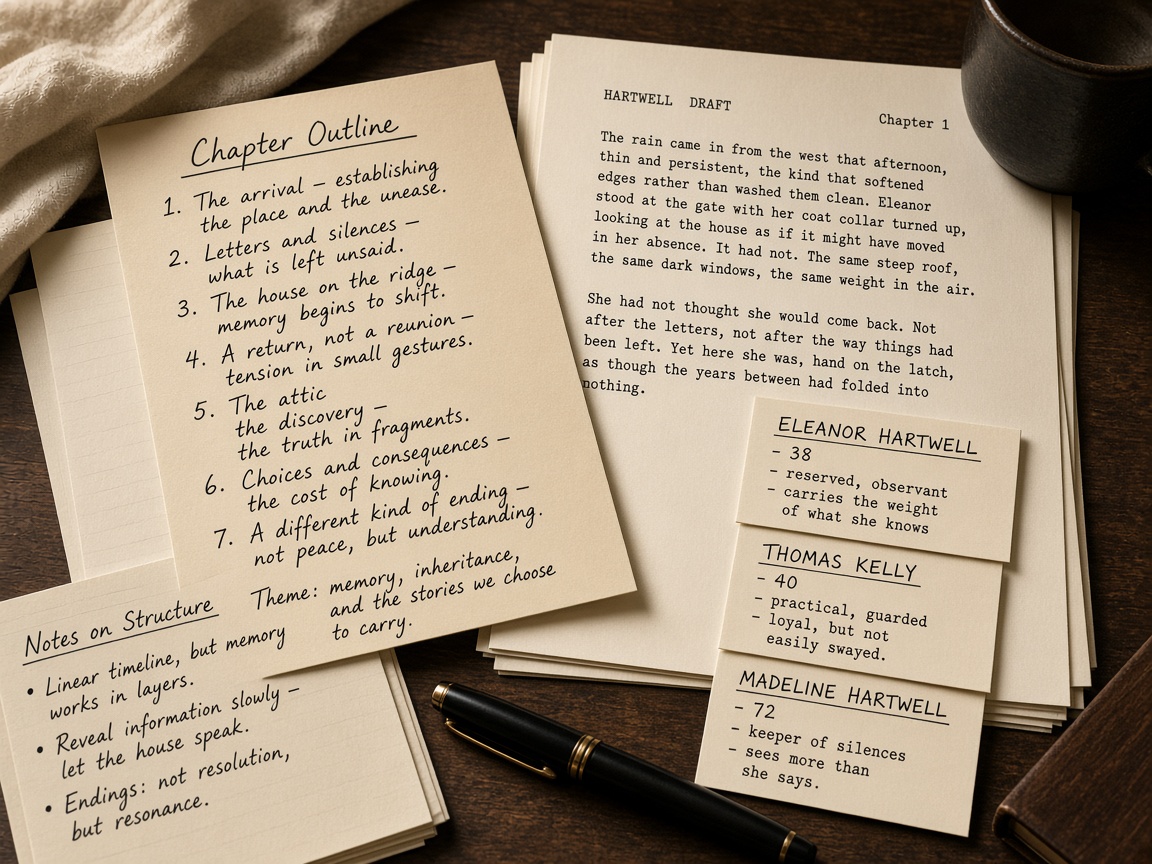 Chapter Outline
1. The arrival – establishing
the place and the unease.
2. Letters and silences –
what is left unsaid.
3. The house on the ridge –
memory begins to shift.
4. A return, not a reunion –
tension in small gestures.
5. The attic
the discovery –
the truth in fragments.
6. Choices and consequences –
the cost of knowing.
7. A different kind of ending –
not peace, but understanding.
Theme: memory, inheritance,
and the stories we choose
to carry.
Notes on Structure
• Linear timeline, but memory
works in layers.
• Reveal information slowly –
let the house speak.
• Endings: not resolution,
but resonance.
HARTWELL DRAFT
Chapter 1
The rain came in from the west that afternoon,
thin and persistent, the kind that softened
edges rather than washed them clean. Eleanor
stood at the gate with her coat collar turned up,
looking at the house as if it might have moved
in her absence. It had not. The same steep roof,
the same dark windows, the same weight in the air.
She had not thought she would come back. Not
after the letters, not after the way things had
been left. Yet here she was, hand on the latch,
as though the years between had folded into
nothing.
ELEANOR HARTWELL
– 38
– reserved, observant
– carries the weight
of what she knows
THOMAS KELLY
– 40
– practical, guarded
– loyal, but not
easily swayed.
MADELINE HARTWELL
– 72
– keeper of silences
– sees more than
she says.